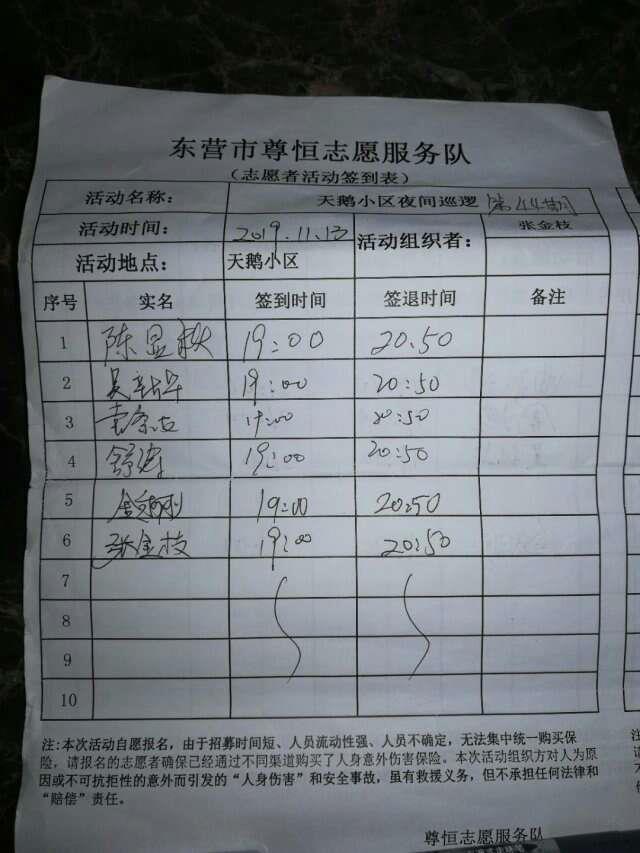 东营市尊恒志愿服务队
（志愿者活动签到表）
活动名称： 天鹅小区夜间巡逻 第44期
活动时间： 2019.11.13 活动组织者： 张金枝
活动地点： 天鹅小区
序号 实名 签到时间 签退时间 备注
1 陈显秋 19:00 20:50
2 吴新华 19:00 20:50
3 19:00 20:50
4 舒涛 19:00 20:50
5 19:00 20:50
6 张金枝 19:00 20:50
7
8
9
10
注:本次活动自愿报名，由于招募时间短、人员流动性强、人员不确定，无法集中统一购买保
险，请报名的志愿者确保已经通过不同渠道购买了人身意外伤害保险。本次活动组织方对人为原
因或不可抗拒性的意外而引发的“人身伤害”和安全事故，虽有救援义务，但不承担任何法律和
“赔偿”责任。
尊恒志愿服务队